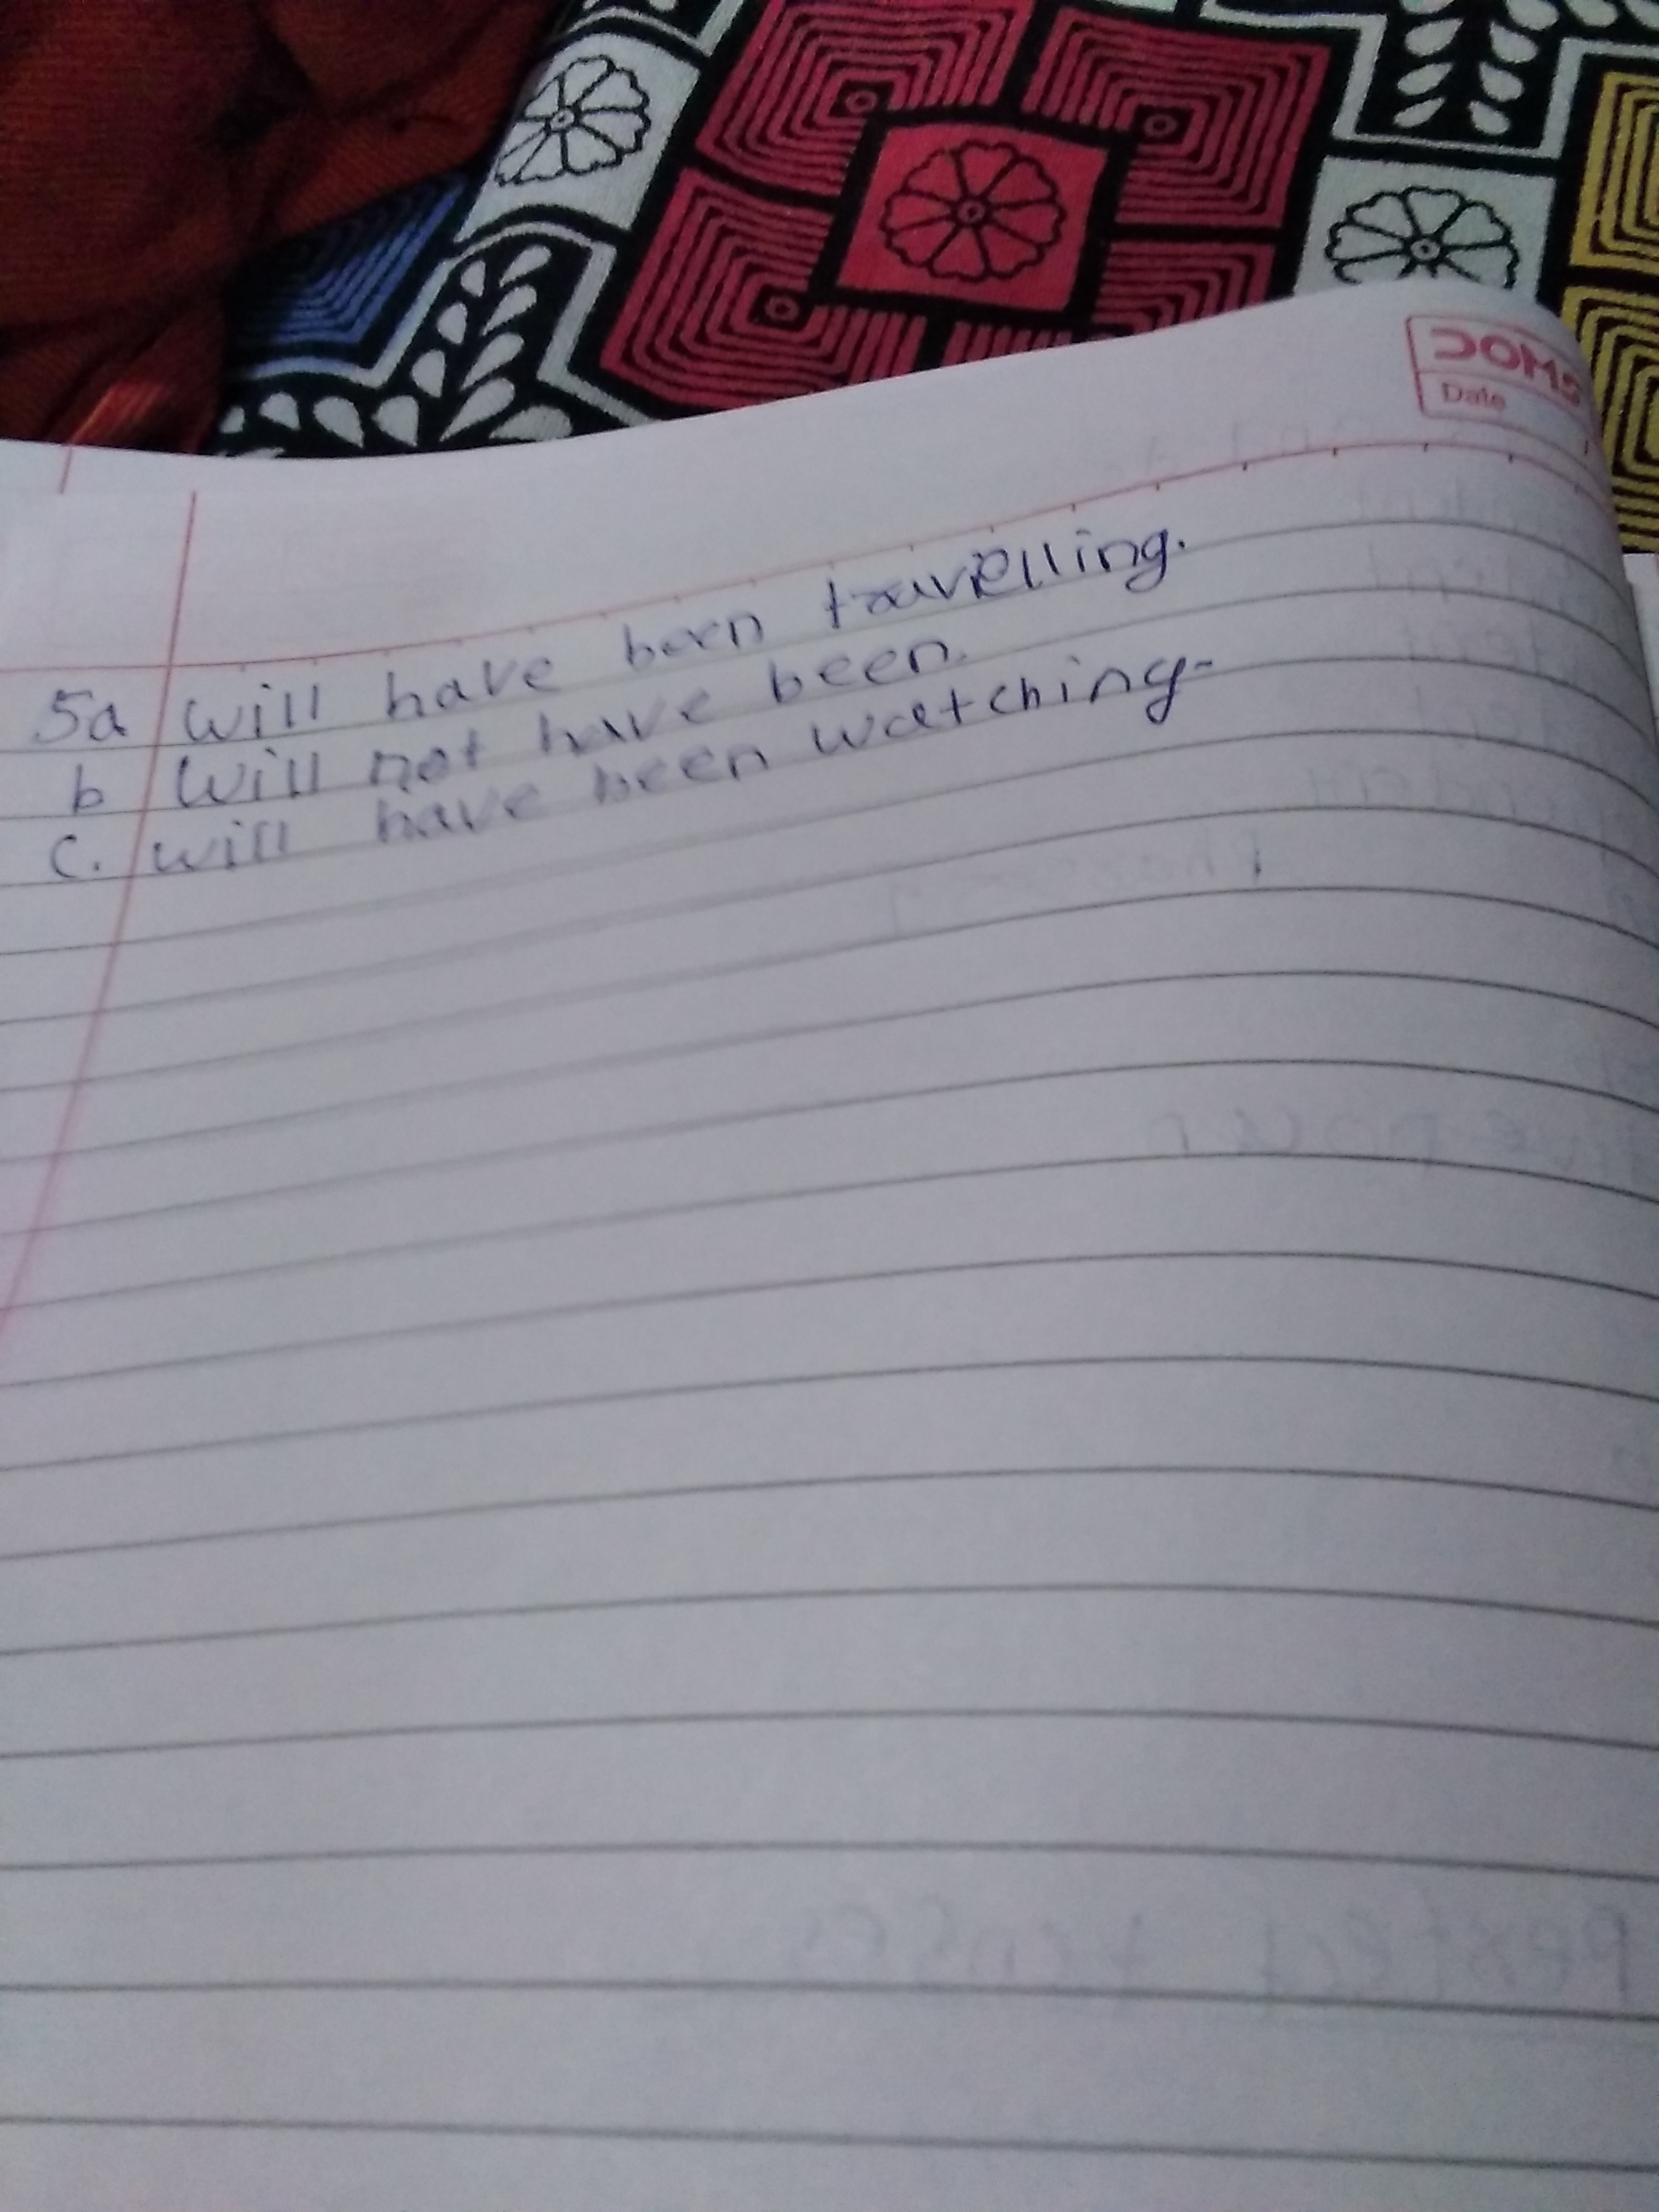 DOMS
Date
5a will have been travelling.
b will not have been.
c. will have been watching-